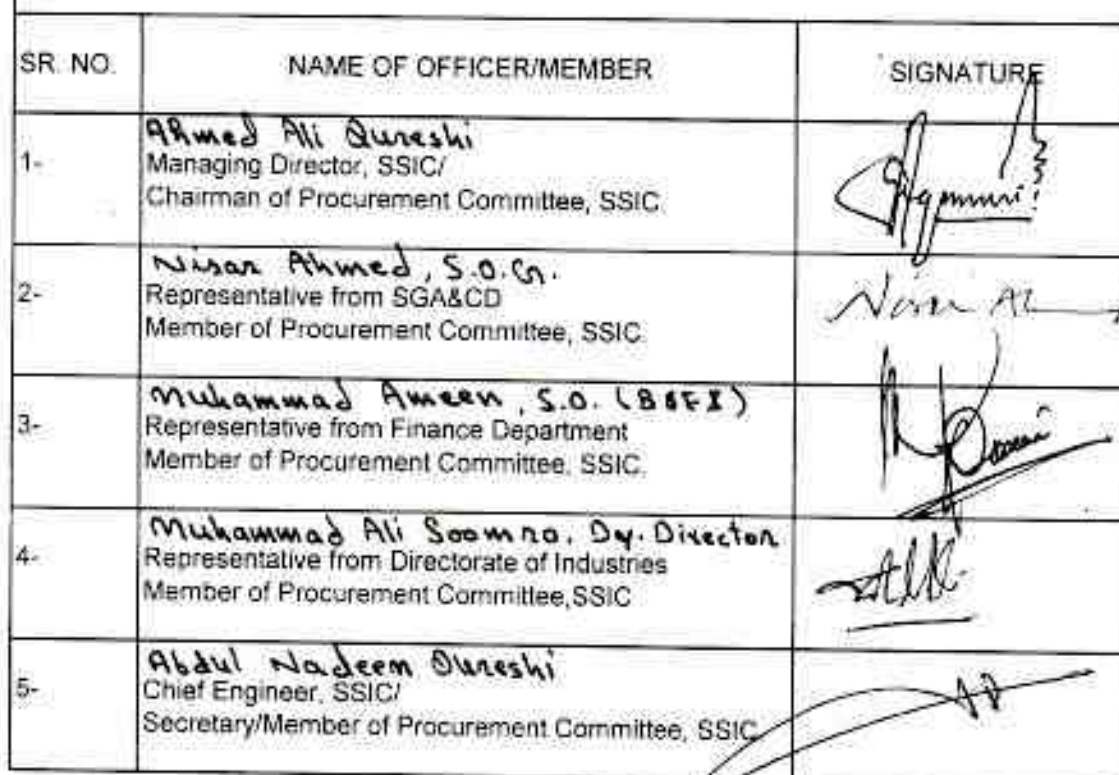 SR. NO. NAME OF OFFICER/MEMBER SIGNATURE
1- Ahmed Ali Qureshi
Managing Director, SSIC/
Chairman of Procurement Committee, SSIC.
2- Nisar Ahmed, S.O.G.
Representative from SGA&CD
Member of Procurement Committee, SSIC.
Nisar Ah
3- Muhammad Ameen, S.O. (B&EX)
Representative from Finance Department
Member of Procurement Committee, SSIC.
4- Muhammad Ali Soomro, Dy. Director
Representative from Directorate of Industries
Member of Procurement Committee,SSIC
5- Abdul Nadeem Qureshi
Chief Engineer, SSIC/
Secretary/Member of Procurement Committee, SSIC